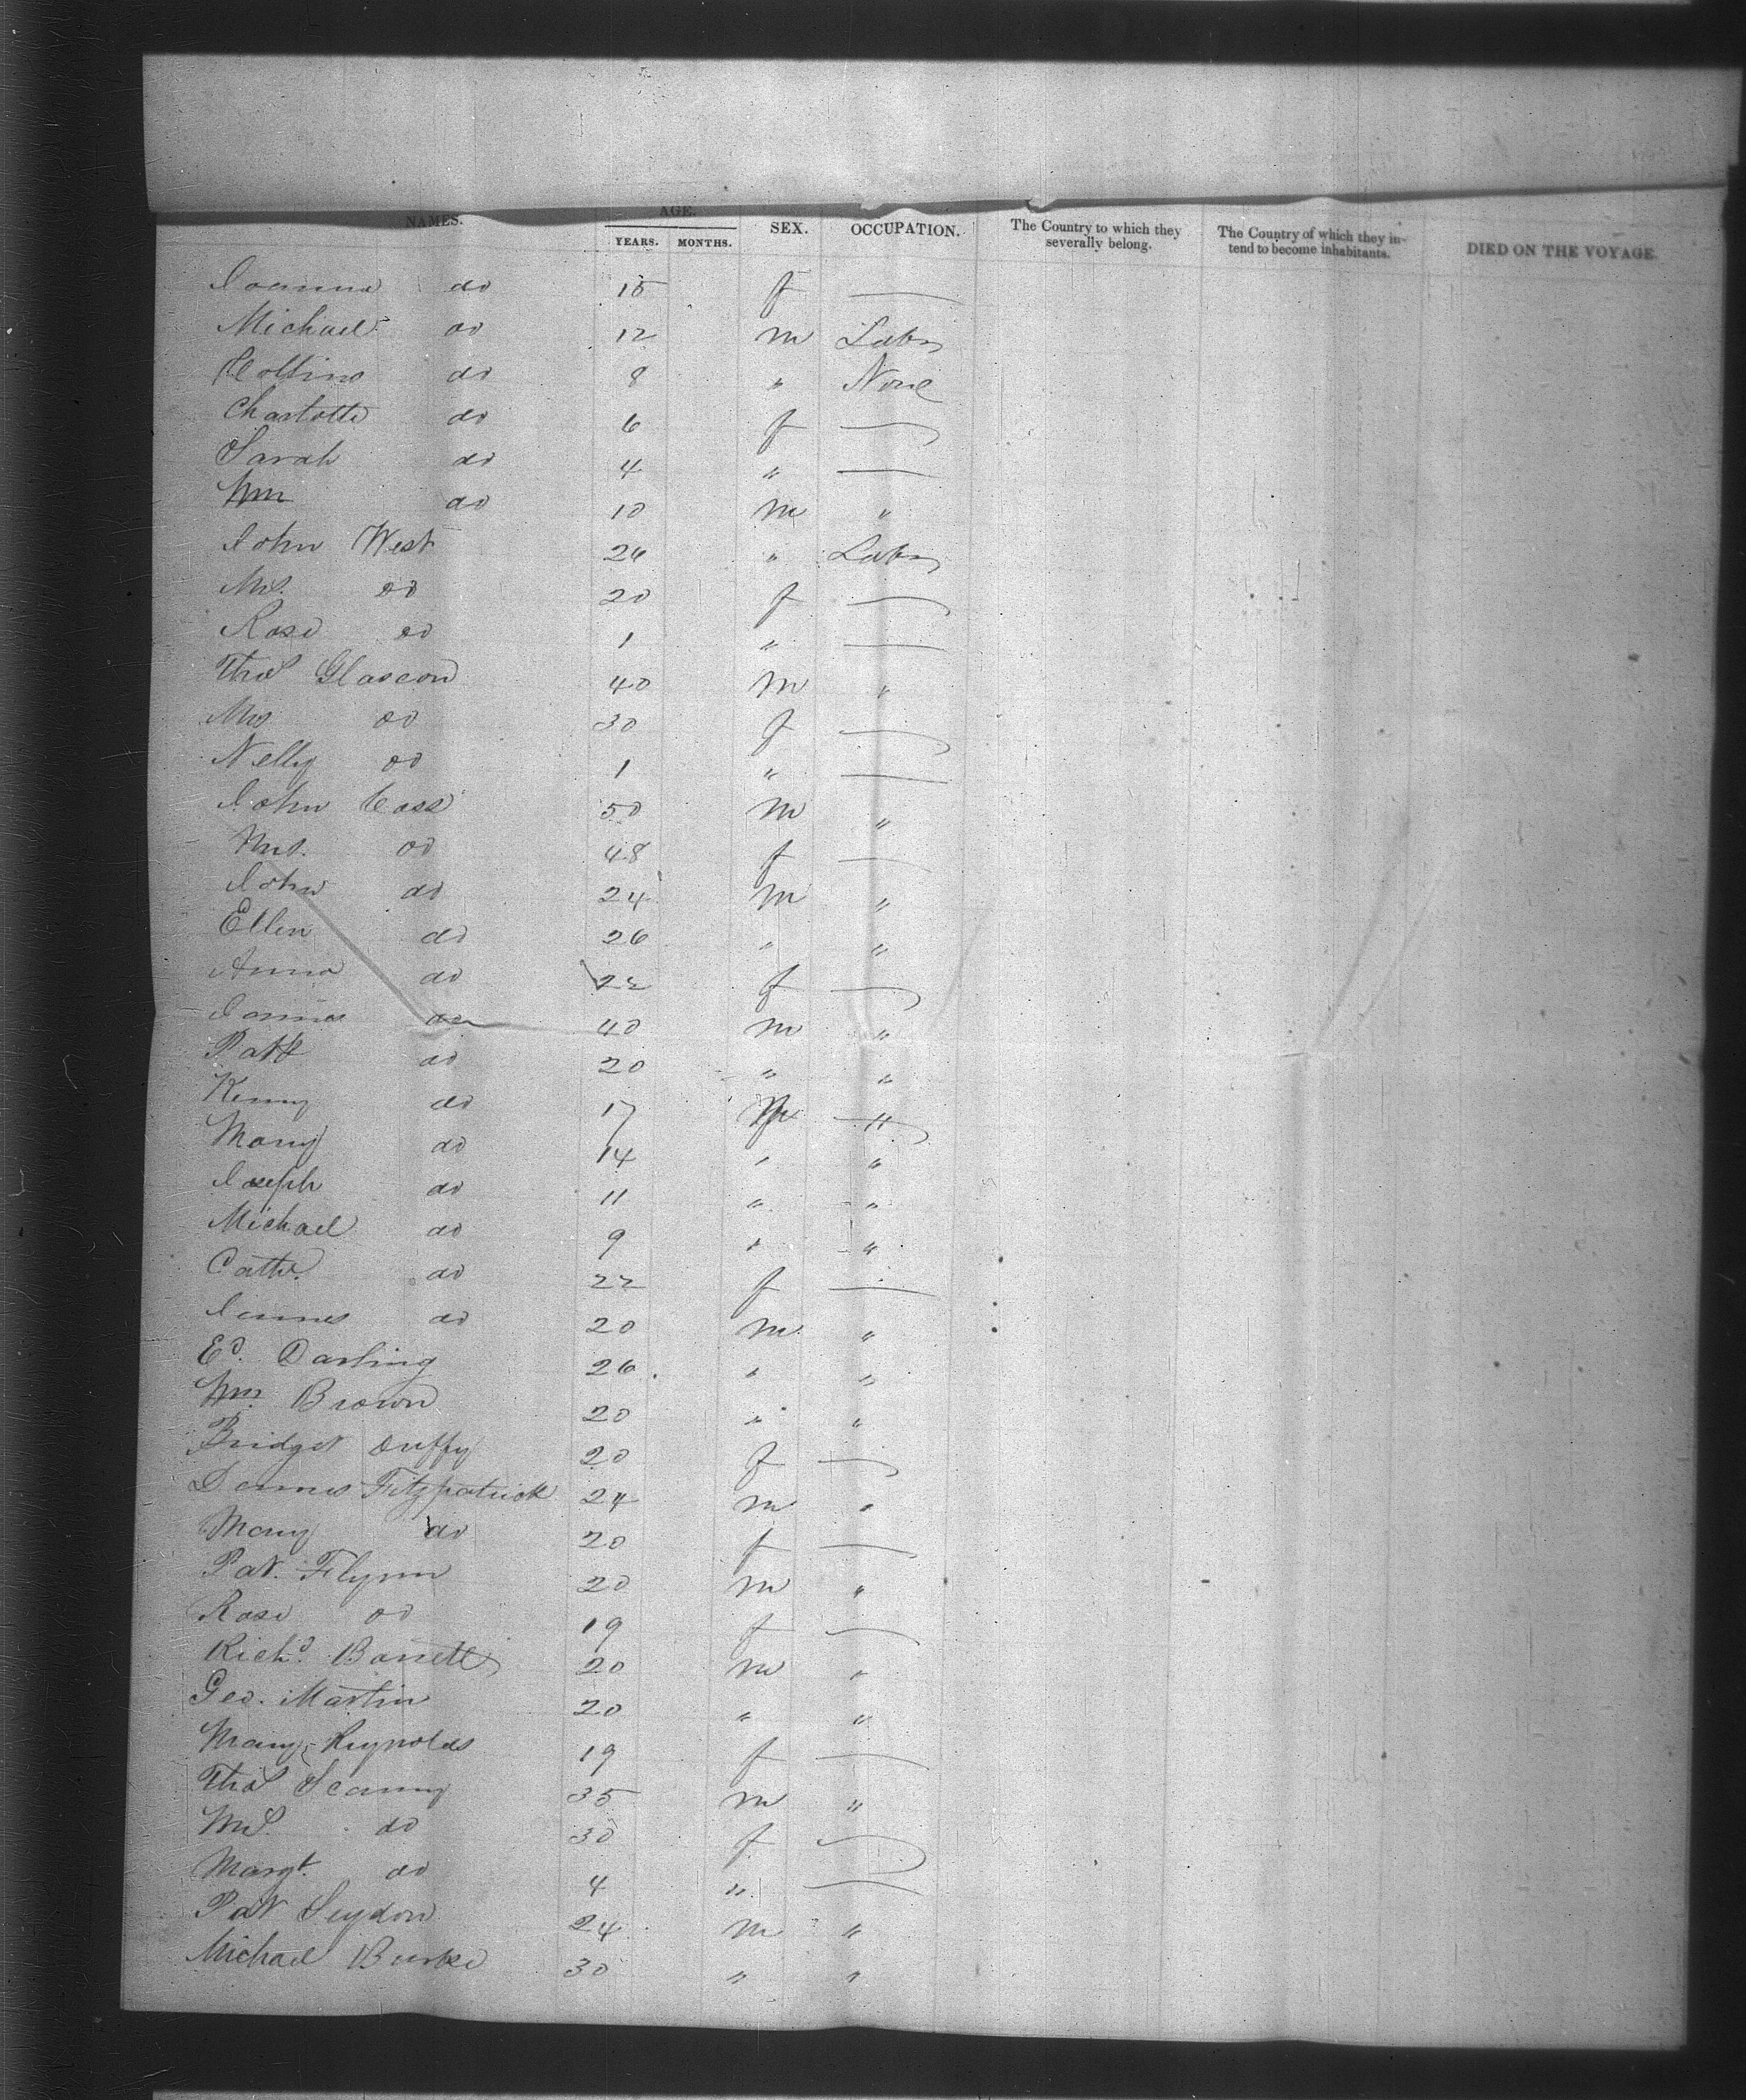 NAMES. AGE. SEX. OCCUPATION. The Country to which they severally belong. The Country of which they intend to become inhabitants. DIED ON THE VOYAGE.
YEARS. MONTHS.
Joanna do 15 f —
Michael do 12 m Labr
Collins do 8 " None
Charlotte do 6 f —
Sarah do 4 " —
Wm do 10 m "
John West 26 " Labr
Mrs. do 20 f —
Rose do 1 " —
Thos Glascow 40 m "
Mrs do 30 f —
Nelly do 1 " —
John Cass 50 m "
Mrs. do 48 f —
John do 24 m "
Ellen do 26 " "
Anna do 22 f —
James do 40 m "
Patk do 20 " "
do 17 m "
Mary do 14 " "
Joseph do 11 " "
Michael do 9 " "
Cathe. do 22 f —
James do 20 m "
Ed. Darling 26 " "
Wm. Brown 20 " "
Bridget Duffy 20 f —
Dennis Fitzpatrick 24 m "
Mary do 20 f —
Pat. Flynn 20 m "
Rose do 19 f —
Richd. Barrett 20 m "
Geo. Martin 20 " "
Mary Reynolds 19 f —
Thos 35 m "
Mrs. do 30 f —
Margt. do 4 " —
Pat 24 m "
Michael Burke 30 " "